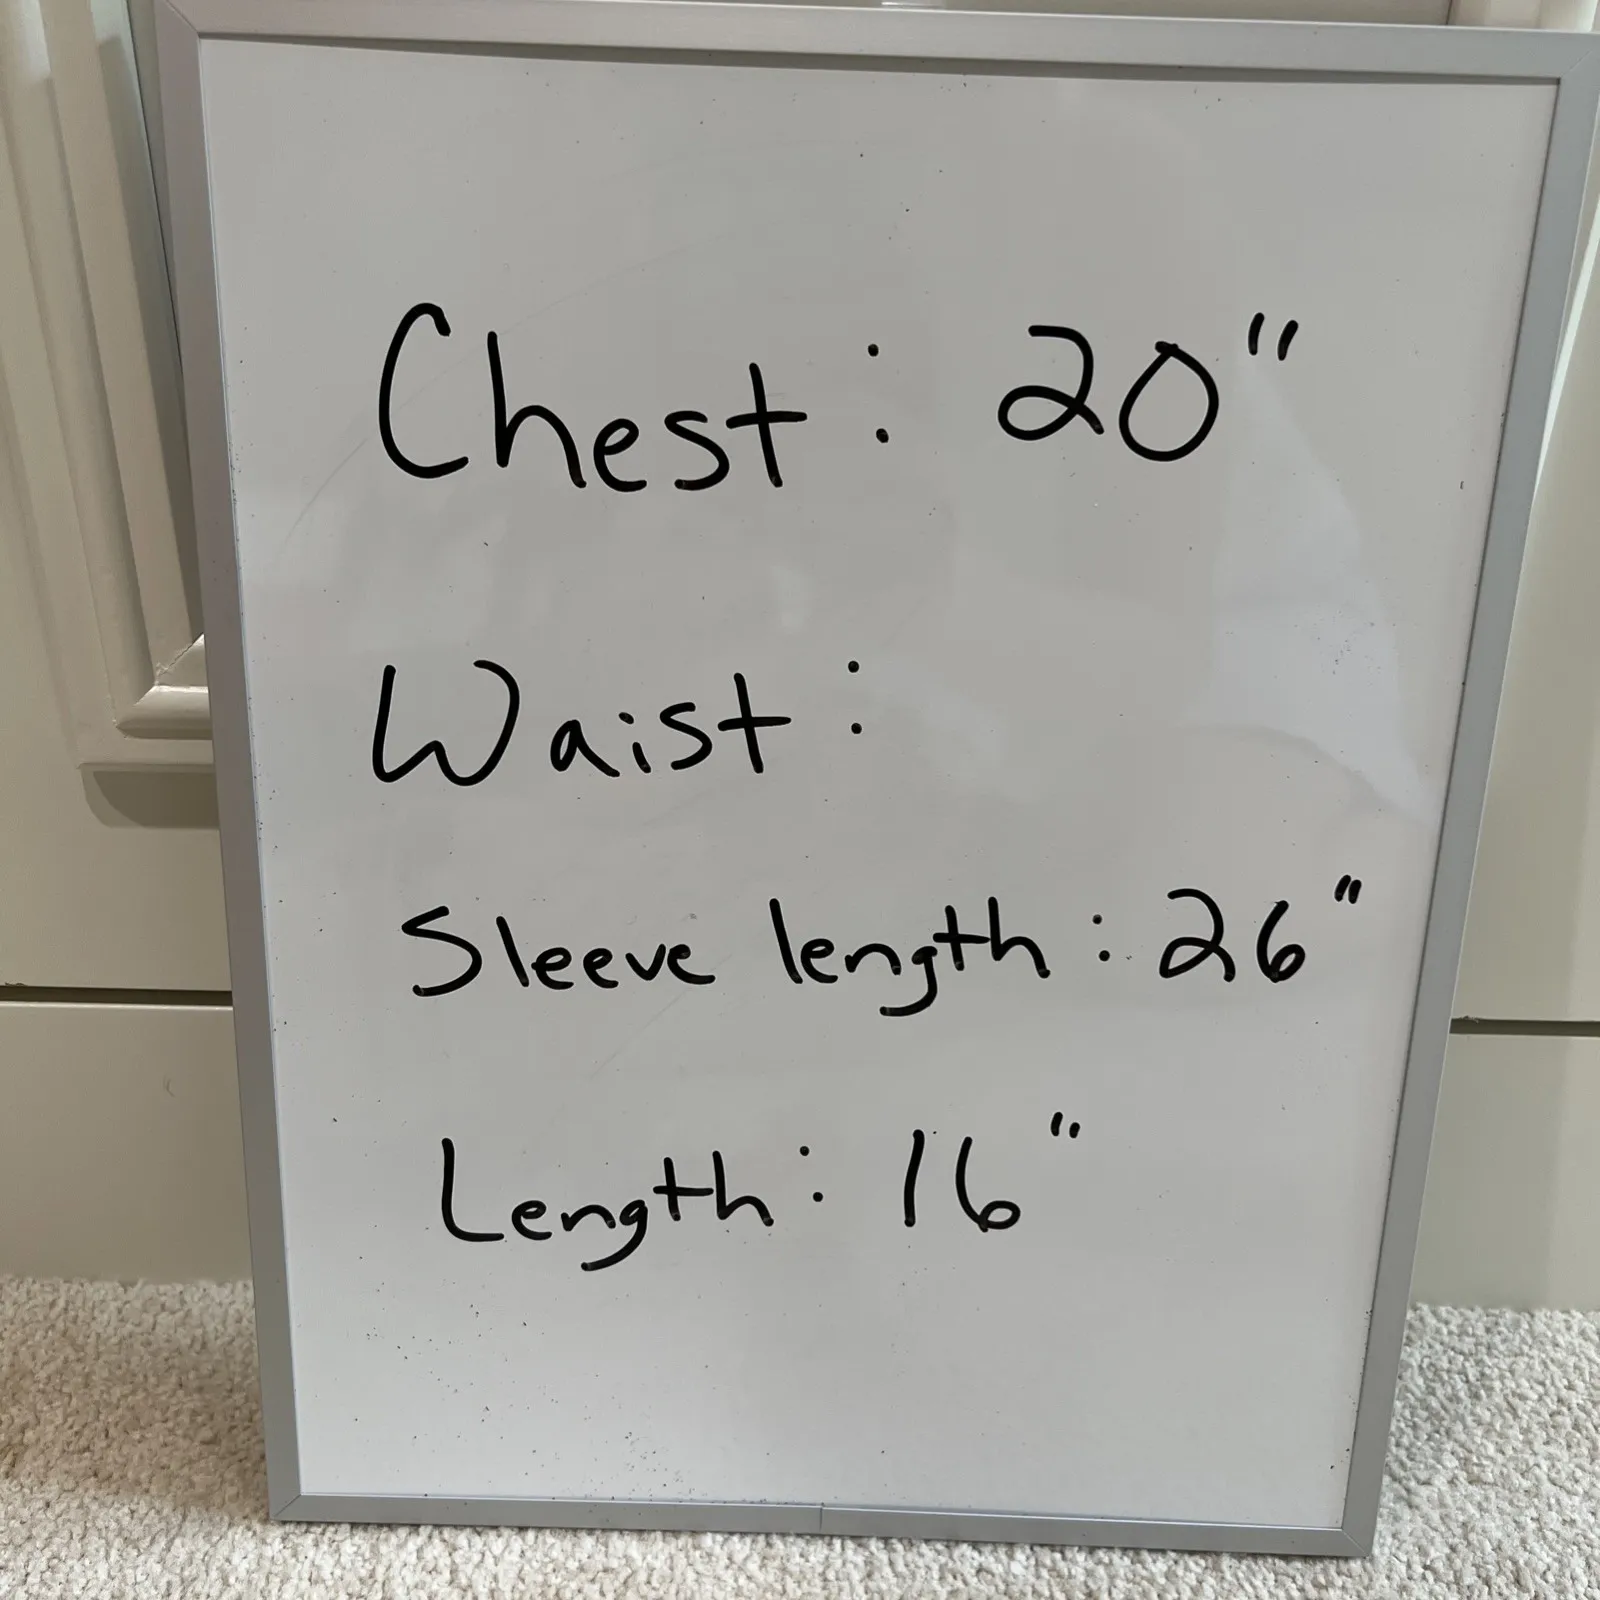 Chest: 20"
Waist:
Sleeve length: 26"
Length: 16"